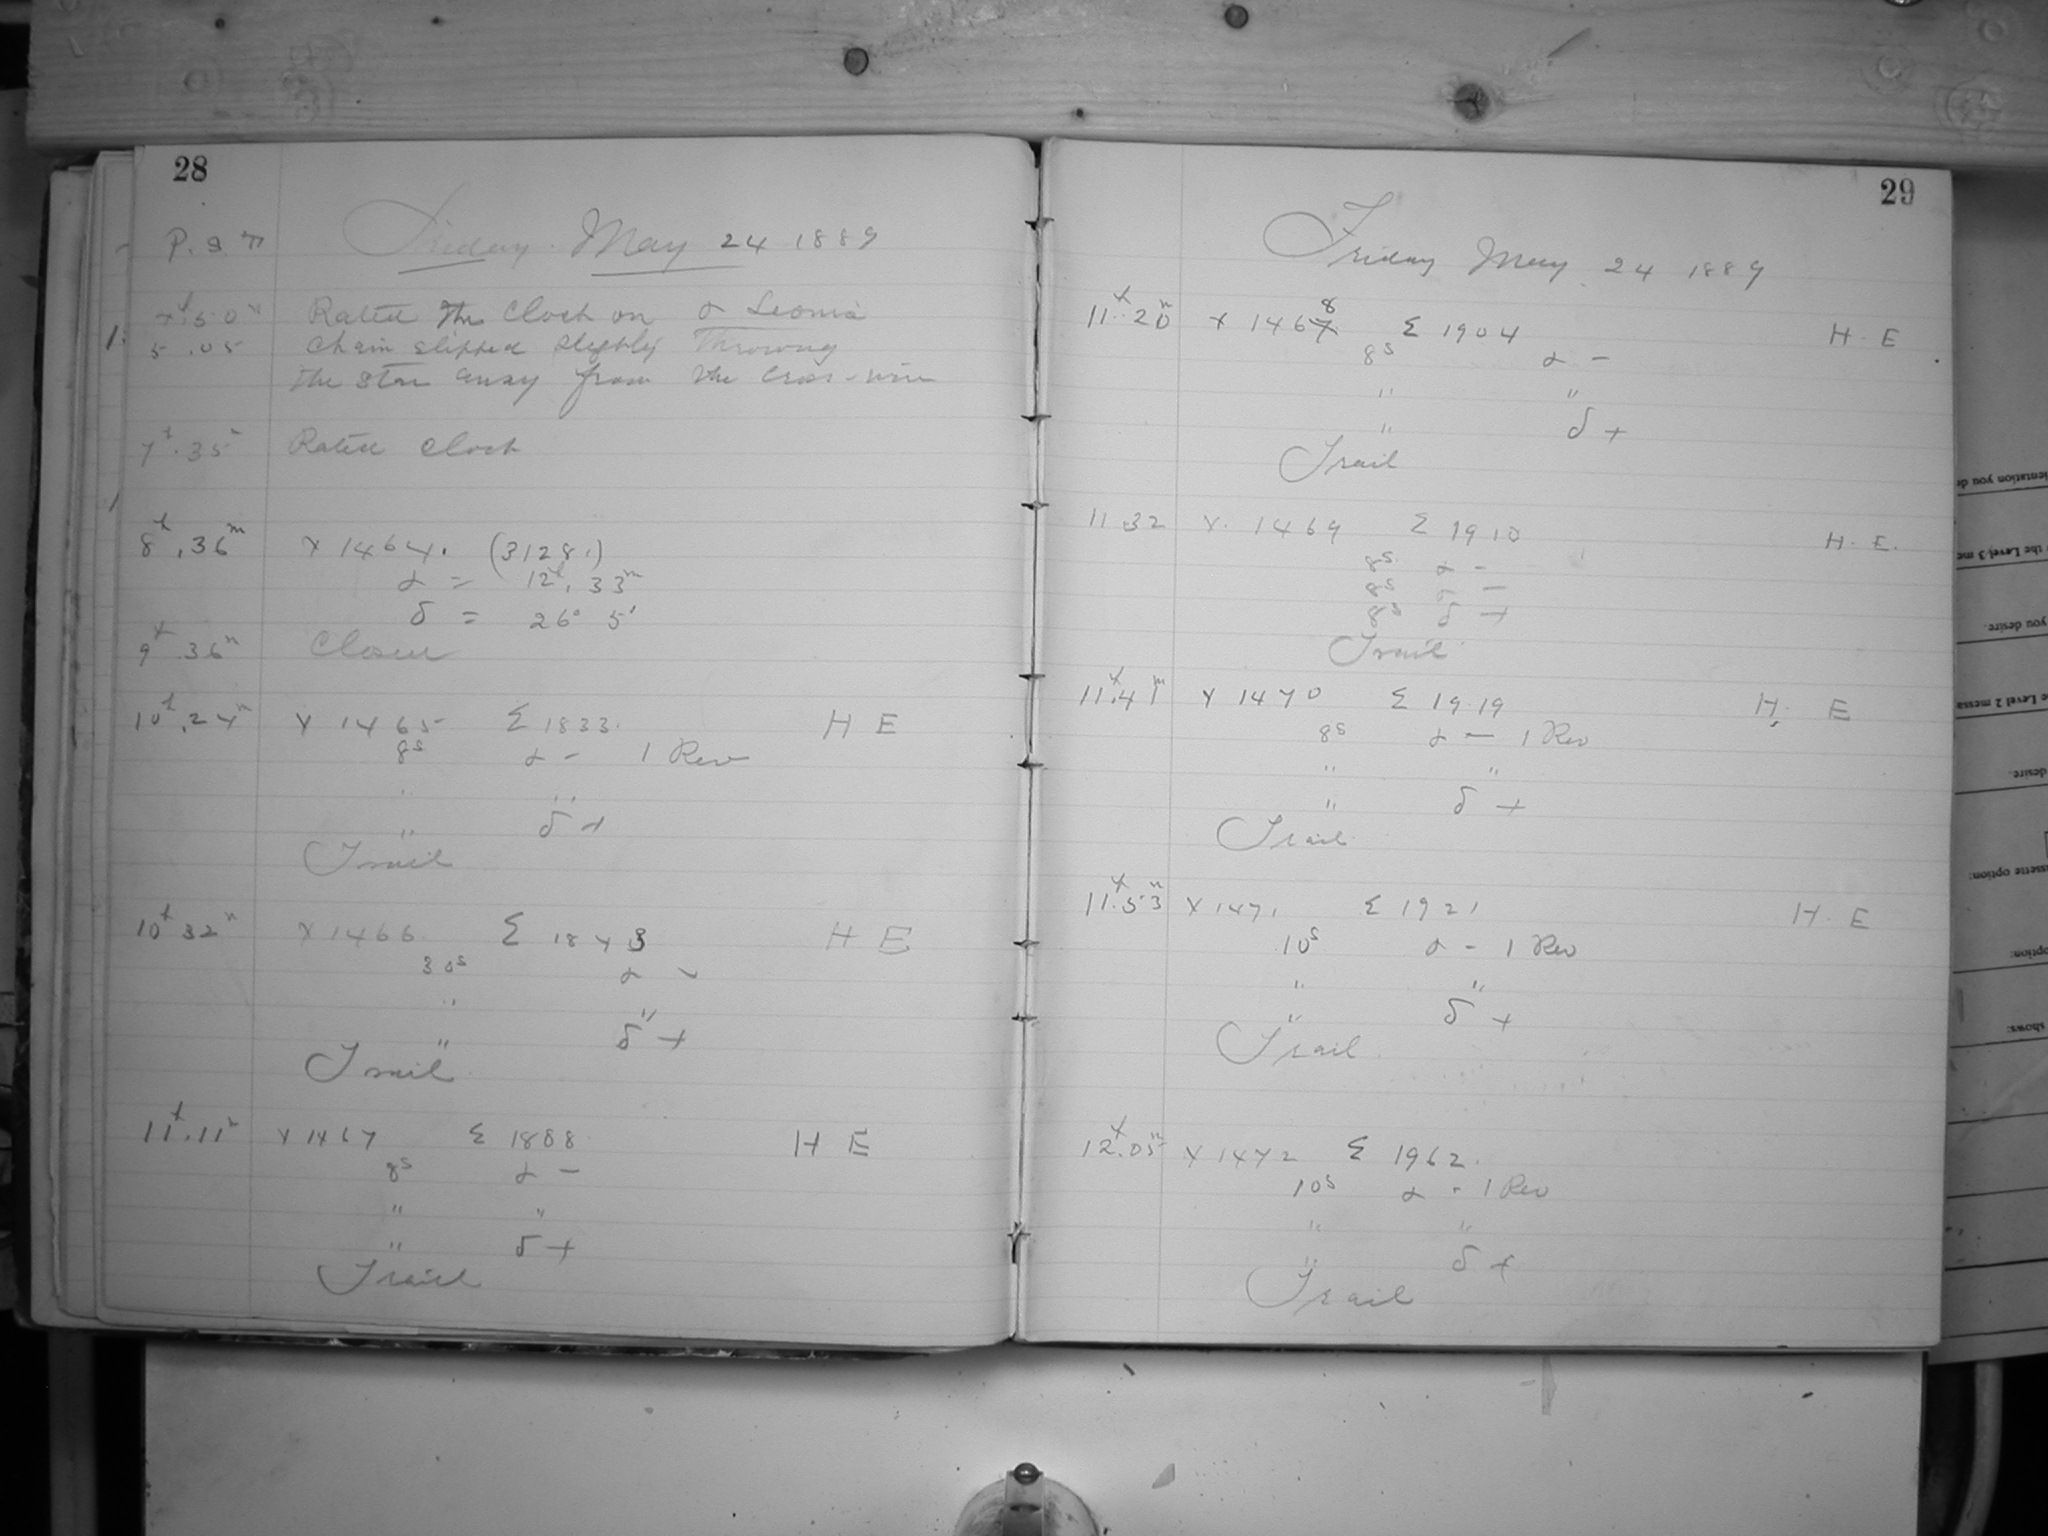 28
P. S. T
Friday May 24 1889
Rated the Clock on α Leonis
5.05 Chain slipped slightly Throwing
the star away from the Cross-wire
7h.35m Rated Clock
8h.36m X 1464. (31281)
α = 12h.33m
δ = 26° 5'
9h 36m Closed
10h.24m X 1465 Σ 1833. H E
8s α - 1 Rev
" "
" δ +
Trail
10h 32m X 1466 Σ 1843 H E
30s α -
" "
" δ +
Trail
11h.11m X 1467 Σ 1888 H E
8s α -
" "
" δ +
Trail
29
Friday May 24 1889
8
11h.20m X 1467 Σ 1904 H. E
8s α -
" "
" δ +
Trail
11.32 X. 1469 Σ 1910 H. E.
8s α -
8s -
8s δ +
Trail
11h.41m X 1470 Σ 1919 H. E
8s α - 1 Rev
" "
" δ +
Trail
11h.53m X 1471 Σ 1921 H. E
10s α - 1 Rev
" "
" δ +
Trail
12h.05m X 1472 Σ 1962.
10s α - 1 Rev
" "
" δ +
Trail
you desire.
option:
shows: